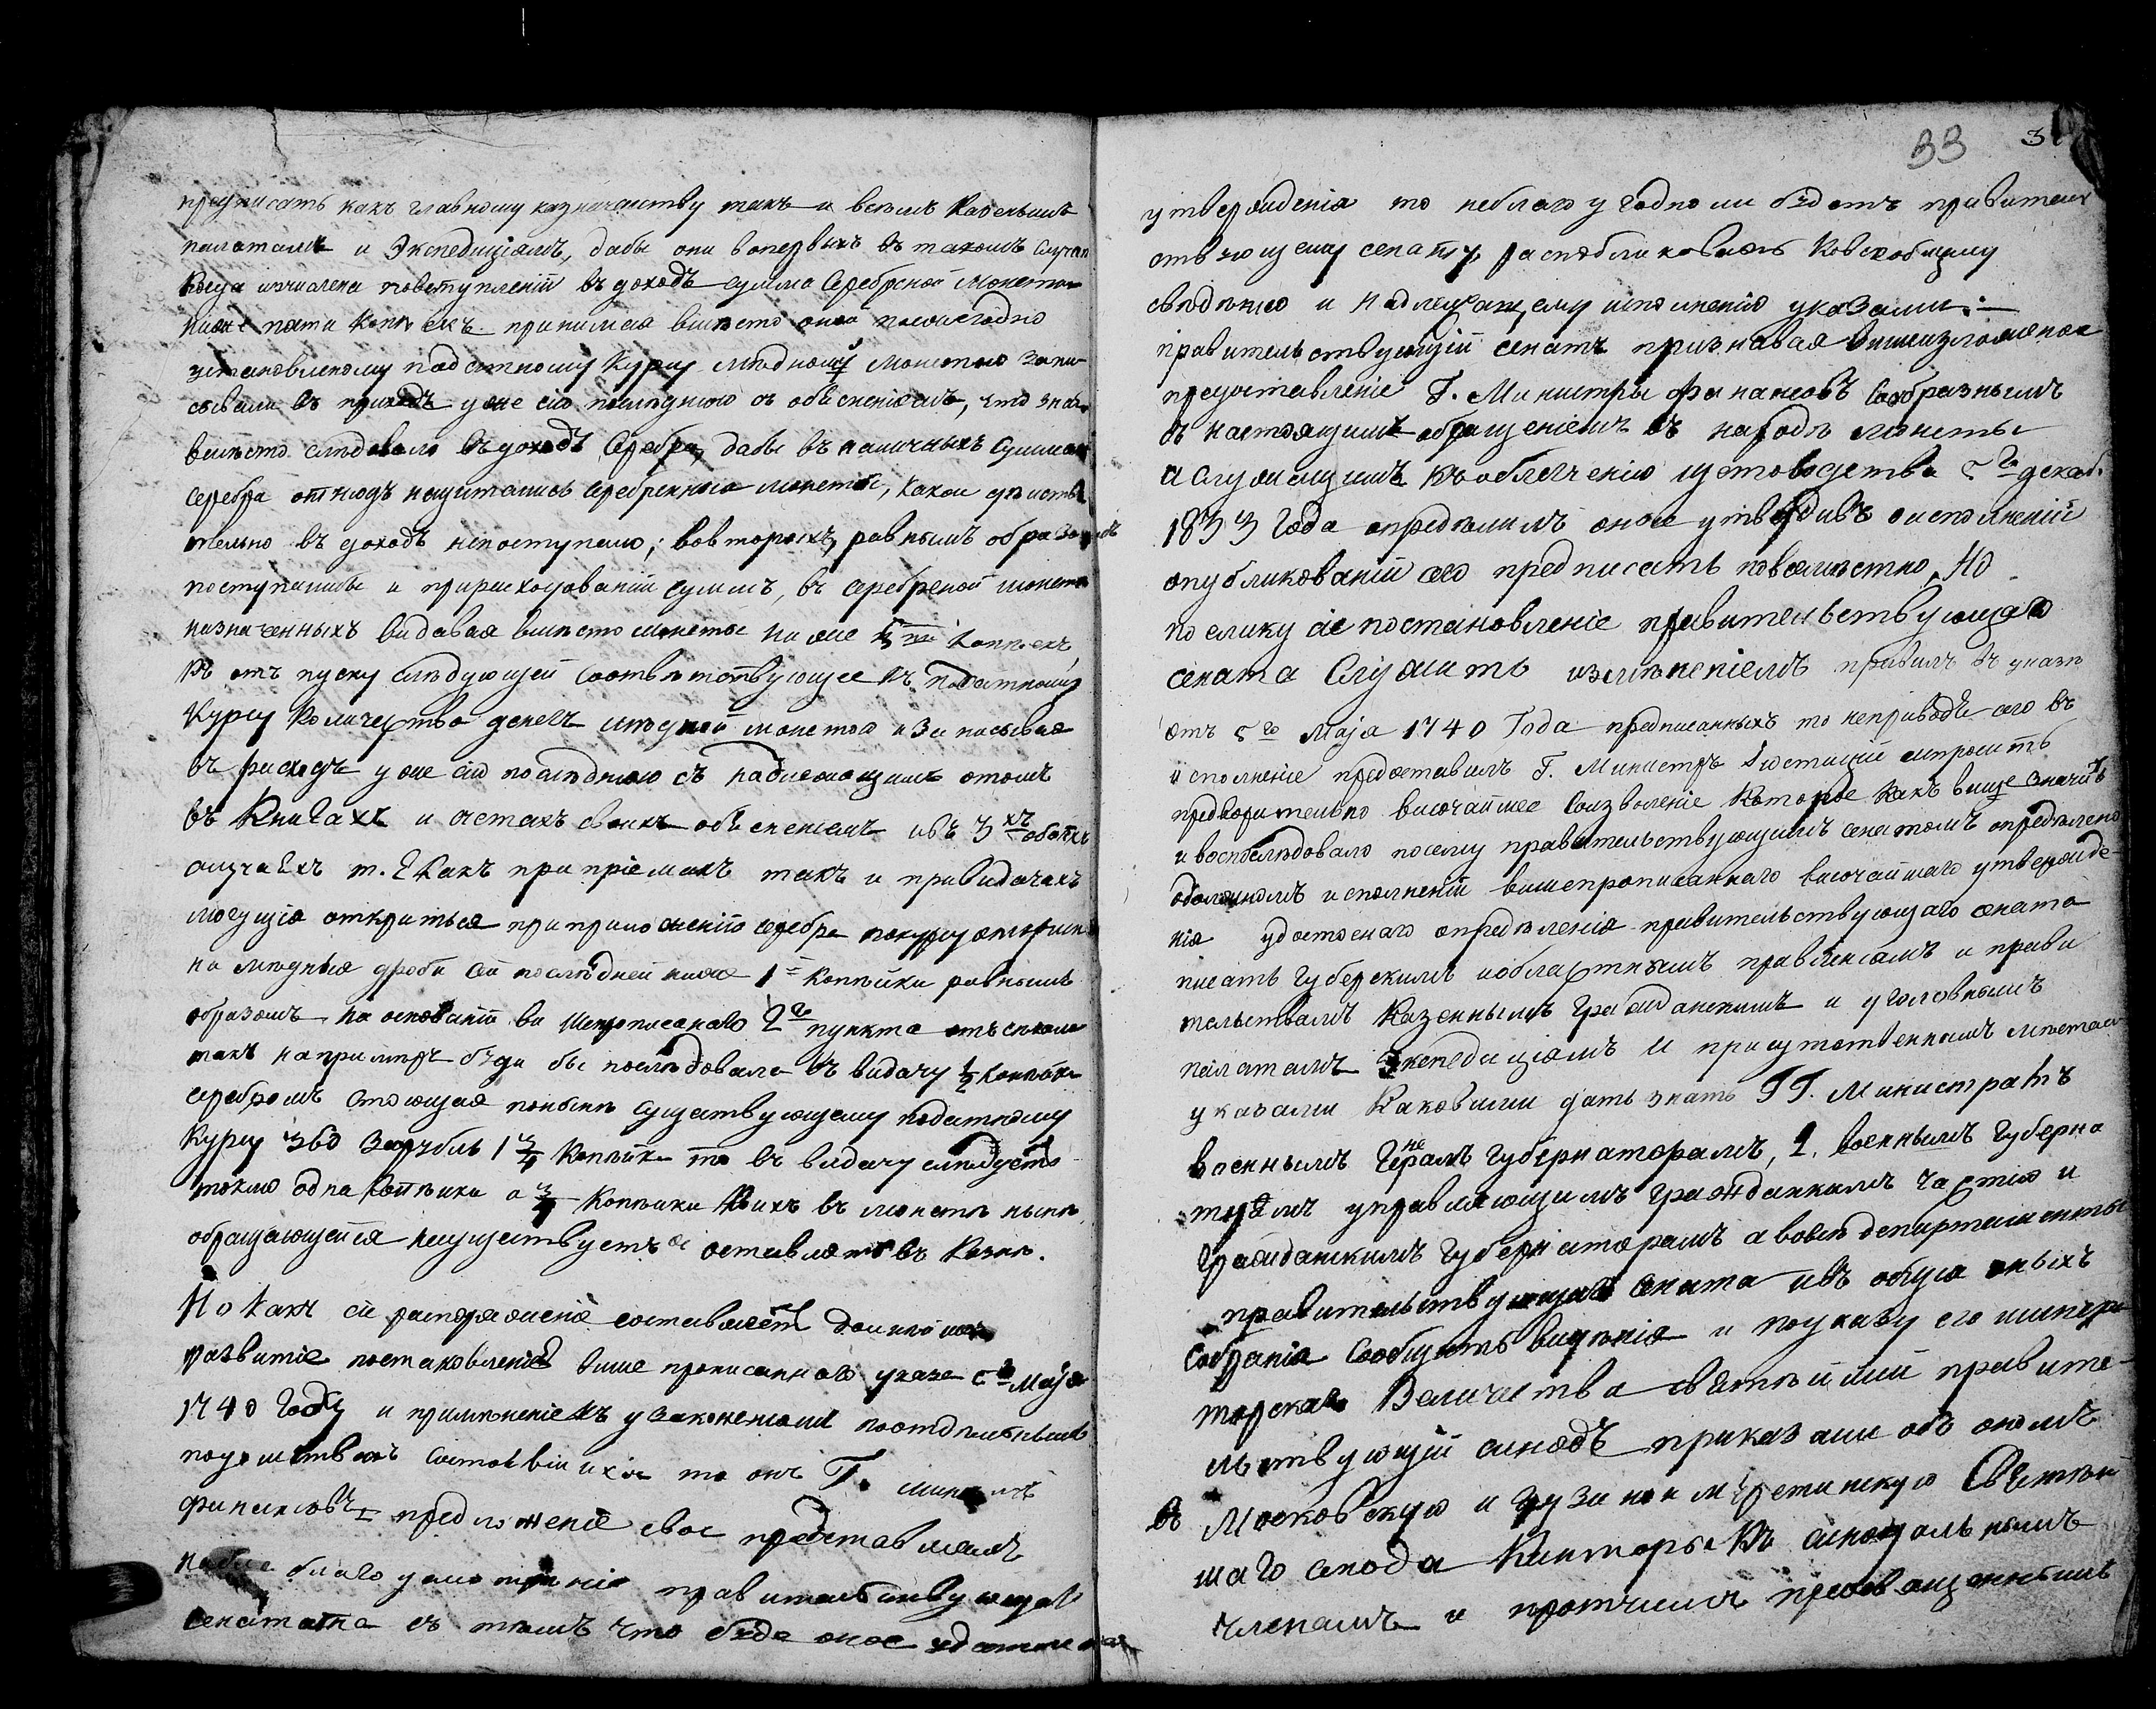 предписать какъ главному казначейству такъ и всемъ Казеннымъ
палатамъ и Экспедиціямъ, дабы они вопервыхъ въ такомъ случаи
когда исчислена поступленій въ доходъ сумма Серебреной монеты
ниже пяти Копѣекъ принимая вмѣсто оной по
установленному податному Курсу мѣдною монетою запи-
сывали въ приходъ уже сію послѣднюю съ объясненіемъ, что
вмѣсто слѣдовало въ доходъ Серебра, дабы въ наличныхъ суммахъ
серебра отнюдь нещиталось серебренной монеты, какой дѣйстви
тельно въ доходъ непоступало; вовторыхъ, равнымъ образомъ
поступали бы и прирасходованіи суммъ, въ серебреной монетѣ
назначенныхъ видавая вмѣсто монеты ниже 5ти Копѣекъ
къ отъ пуску слѣдующей соотвѣтствующее къ податному
курсу количество денегъ мѣдной монетой и записывая
въ расходъ уже сію послѣднюю съ надлежащимъ отомъ
въ Книгахъ и счетахъ своихъ объясненіемъ ивъ 3хъ
случаяхъ т. е какъ при пріемахъ такъ и привидачахъ
могущія откриться приприложеніи серебра покурсу
на мѣдныя дроби сей послѣдней ниже 1й Копѣйки равнымъ
образомъ на основаніи вишепрописанаго 2го пункта отъсѣкаля
такъ напримѣръ буди бы послѣдовало въ видачу ½ копѣйки
серебромъ стоющая понынѣ существующему податному
Курсу 360 зарубль 1 ¾ Копѣйки то въ видачу слѣдуетъ
токмо одна Копѣйка а ¾ Копѣйки коихъ въ монетѣ нынѣ
обращающейся несуществуетъ оставлять въ Казнѣ.
Но какъ сіе распоряженіе составляетъ
развитіе постановленія више прописанномъ указе 5го Маја
1740 году и примѣненіе къ узаконеніямъ
состоявшихся то онъ Г. Министръ
финансовъ предложеніе свое представляя
благоусмотреніе правительствующаго
сената съ тѣмъ что буде оное
33
утвержденія то неблагоугодноли будетъ правитель
ствующему сенату, распубликовать Ковсеобщему
свѣденію и надлежащему исполненію указами:—
правительствующій сенатъ признавая вишеизложеное
предоставленіе Г. Министра Финансовъ Сообразнымъ
съ настоящимъ обращеніемъ въ народѣ монеты
и служащимъ къоблегченію щетоводства 5го декаб.
1833 года опредѣлилъ оное утвердивъ о исполненіи
опубликованіи сего предписать повсемѣстно, Но
поелику сіе постановленіе правительствующаго
сената Служитъ измѣненіемъ правилъ въ указѣ
отъ 5го Маја 1740 Года предписанныхъ то неприводя сего въ
исполненіе предоставилъ Г. Министръ Юстиціи испросить
предварительно височайшее Соизволеніе Которое Какъ више значитъ
и воспослѣдовало посему правительствующимъ сенатомъ опредѣлено
исполненіи вишепрописаннаго височайшаго утвержде-
нія удостоенаго опредѣленія правительствующаго сената
писать губерскимъ и областнымъ правленіямъ и прави
тельствамъ Казеннымъ Гражданскимъ и уголовнымъ
палатамъ Экспедиціямъ и присутственнымъ мѣстамъ
указами Каковыми дать знать ГГ. Министрамъ
военнымъ Генераламъ губернаторамъ, военнымъ губерна
торамъ управляющимъ гражданкимъ частію и
гражданскимъ губернаторамъ а вовсѣ департаменты
правительствующаго Сената ивъ общія оныхъ
Собранія Сообщить видѣнія и поуказу его импера
торскаго Величества святѣйшій правите-
льствующій синодъ приказали объ ономъ
въ Московскую и Грузино имеретинскую Святѣй
шаго синода Конторы къ синодальнымъ
членамъ и протчимъ преосвященнымъ